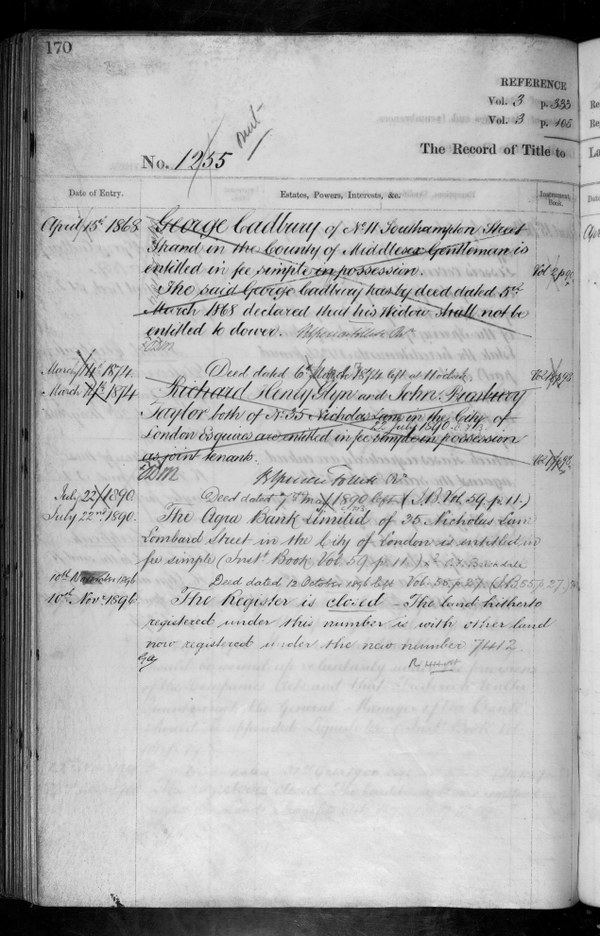 170
REFERENCE
Vol. 3 p. 333
Vol. 3 p. 105
No. 1255
The Record of Title to
Date of Entry.
Estates, Powers, Interests, &c.
Instrument Book.
April 15th 1868
George Cadbury of No 11 Southampton Street
Strand in the County of Middlesex Gentleman is
entitled in fee simple in possession.
The said George Cadbury has by deed dated 5th
March 1868 declared that his Widow shall not be
entitled to dower.
March 14th 1874.
Deed dated 6th March 1874 left at 11 o'clock
March 14th 1874
Richard Henry Glyn and John
Taylor both of No 35 Nicholas Lane in the City of
22 July 1890
London Esquires are entitled in fee simple in possession
as joint tenants.
EDM
July 22 1890
Deed dated 7th May 1890 left (I.B. Vol 59. p. 11.)
July 22nd 1890.
The Agra Bank Limited of 35 Nicholas Lane
Lombard Street in the City of London is entitled in
fee simple (Inst. Book Vol 59. p. 11.)
10th November 1896
Deed dated 12 October 1896 left Vol. 55. p. 27.
10th Nov. 1896
The Register is closed – The land hitherto
registered under this number is with other land
now registered under the new number 7412.